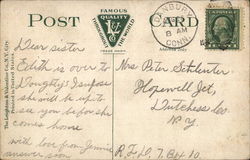 POST CARD
FAMOUS
QUALITY
THROUGHOUT
THE WORLD
TRADE MARK
DANBURY
8 AM
CONN.
Dear sister
Edith is over to
Dougaty's I supose
she will be up to
see you before she
comes home
with love from Jennie
answer soon
Mrs Peter Schlenter
Hopewell Jct,
Dutchess Co.
N. Y
R.F.D. 7, Box 10.